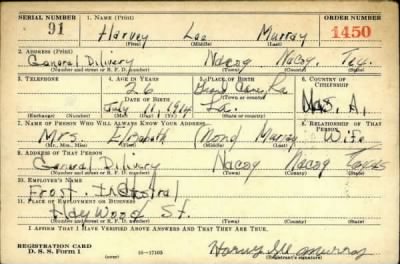 SERIAL NUMBER 1. NAME (Print) ORDER NUMBER
91 Harvey Lee Murray 1450
(First) (Middle) (Last)
2. ADDRESS (Print)
General Dilivery Nacog Nacoy, Tex.
(Number and street or R. F. D. number) (Town) (County) (State)
3. TELEPHONE 4. AGE IN YEARS 5. PLACE OF BIRTH 6. COUNTRY OF CITIZENSHIP
26
(Town or county)
DATE OF BIRTH
July 11, 1914 La.
(Exchange) (Number) (Mo.) (Day) (Yr.) (State or country)
7. NAME OF PERSON WHO WILL ALWAYS KNOW YOUR ADDRESS 8. RELATIONSHIP OF THAT PERSON
Mrs. Elizabeth Murray Wife
(Mr., Mrs., Miss) (First) (Middle) (Last)
9. ADDRESS OF THAT PERSON
General Dilivery Nacog Nacog Texas
(Number and street or R. F. D. number) (Town) (County) (State)
10. EMPLOYER'S NAME
Frost
11. PLACE OF EMPLOYMENT OR BUSINESS
Hay Wood St.
(Number and street or R. F. D. number) (Town) (County) (State)
I AFFIRM THAT I HAVE VERIFIED ABOVE ANSWERS AND THAT THEY ARE TRUE.
REGISTRATION CARD
D. S. S. Form 1 16—17105 Harvey Lee Murray
(Registrant's signature)